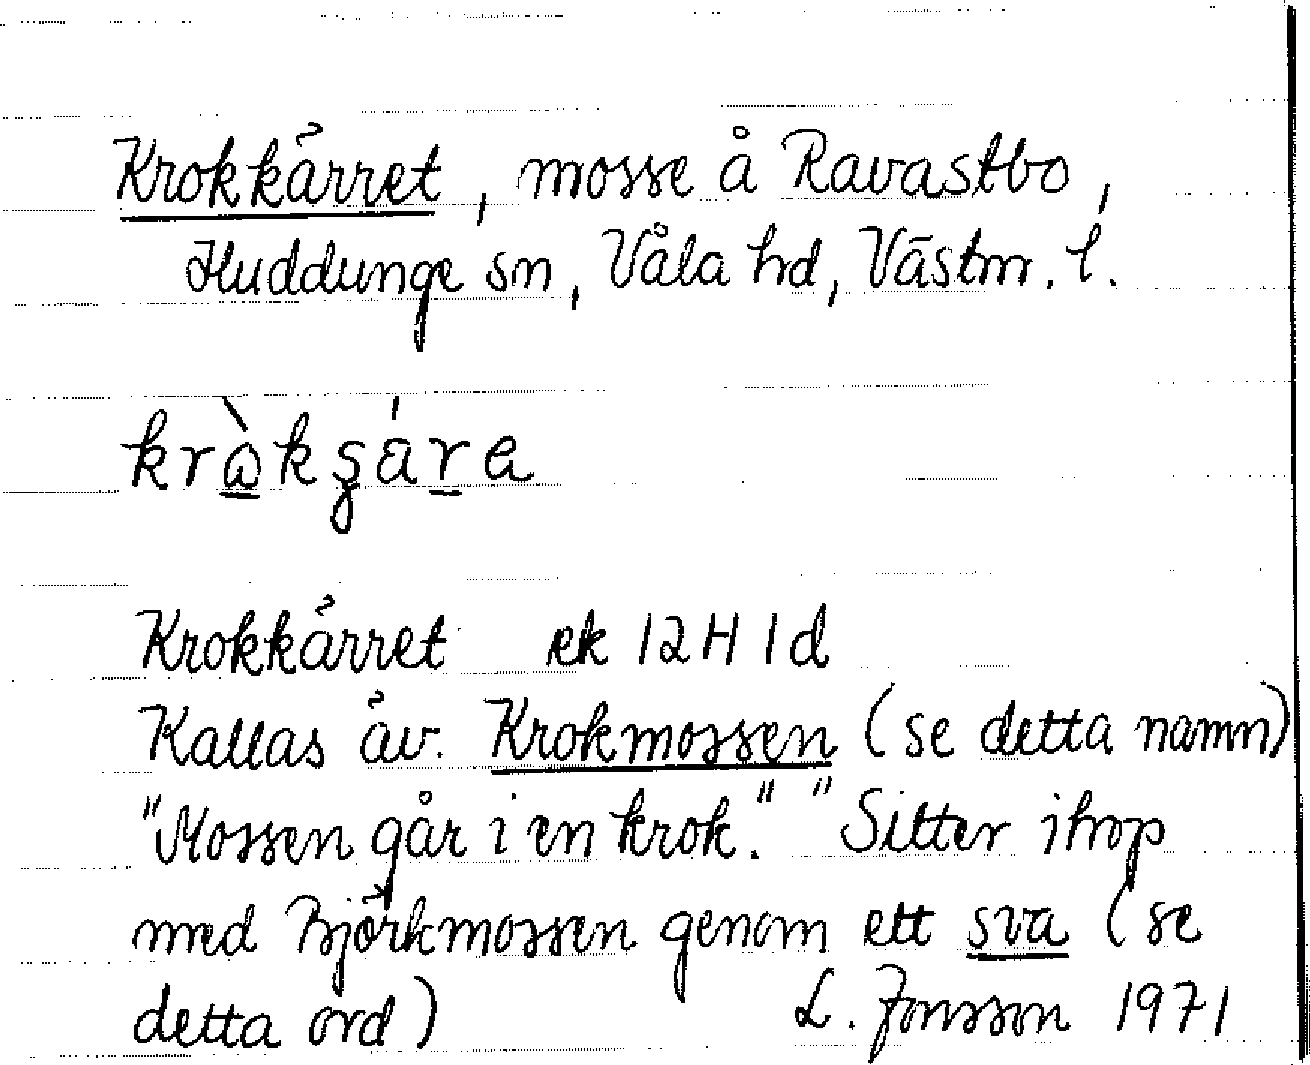 Krokkärret, mosse å Ravastbo,
Huddunge sn, Våla hd, Västm. l.
Krokkärret ek 12H 1d
Kallas äv. Krokmossen (se detta namn)
"Mossen går i en krok." "Sitter ihop
med Björkmossen genom ett sva (se
detta ord) L. Jonsson 1971